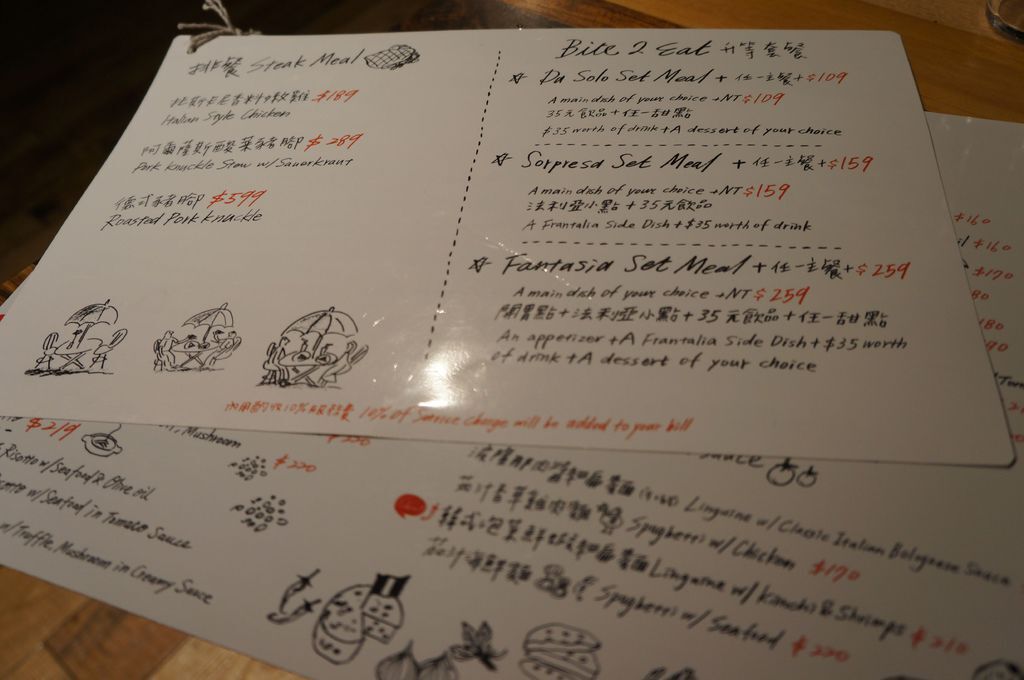 排餐 Steak Meal
托斯卡尼香料嫩雞 $189
Italian Style Chicken
阿爾薩斯酸菜豬腳 $289
Pork Knuckle Stew w/ Sauerkraut
德式豬腳 $599
Roasted Pork Knuckle
Bite 2 Eat 升等套餐
Du Solo Set Meal + 任一主餐 + $109
A main dish of your choice + NT $109
35元飲品 + 任一甜點
$35 worth of drink + A dessert of your choice
Sorpresa Set Meal + 任一主餐 + $159
A main dish of your choice + NT $159
法利亞小點 + 35元飲品
A Frantalia Side Dish + $35 worth of drink
Fantasia Set Meal + 任一主餐 + $259
A main dish of your choice + NT $259
開胃點 + 法利亞小點 + 35元飲品 + 任一甜點
An appetizer + A Frantalia Side Dish + $35 worth
of drink + A dessert of your choice
內用酌收10%服務費 10% of Service Charge will be added to your bill
$219
Mushroom
$220
Risotto w/ Seafood & Olive oil
$220
w/ Seafood in Tomato Sauce
w/ Truffle, Mushroom in Creamy Sauce
Sauce
Linguine w/ Classic Italian Bolognese Sauce
茄汁香草雞肉麵 Spaghetti w/ Chicken $170
韓式泡菜鮮蝦細扁麵 Linguine w/ Kimchi & Shrimps $210
茄汁海鮮麵 Spaghetti w/ Seafood $220
$160
$160
$170